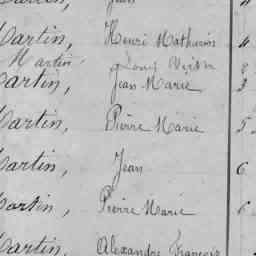 Martin, Jean
Martin, Henri Mathurin 4
Martin Louis 8
Martin, Jean Marie 3
Martin, Pierre Marie 5
Martin, Jean 6
Martin, Pierre Marie 6
Martin, Alexandre François